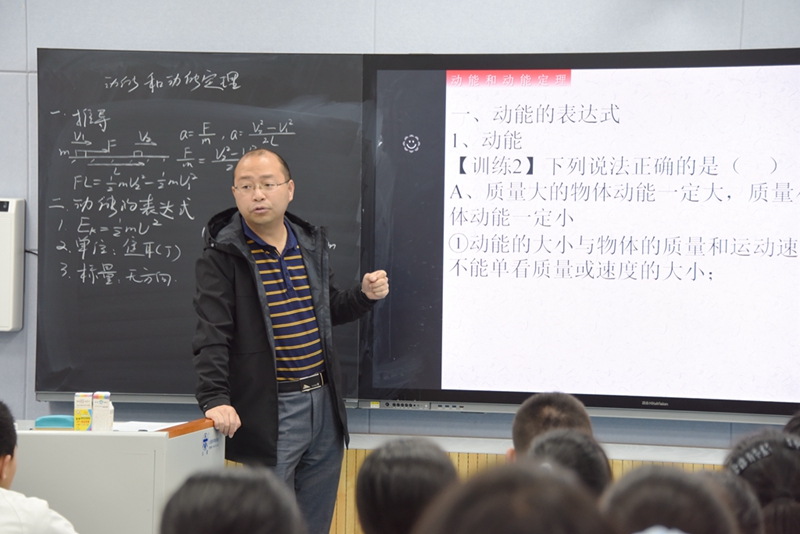 动能和动能定理
一. 推导
V₁ F V₂ a=F/m, a=(V₂²-V₁²)/2L
m
L
FL=½mV₂²-½mV₁²
二. 动能的表达式
1. Eₖ=½mv²
2. 单位: 焦耳(J)
3. 标量, 无方向.
动能和动能定理
一、动能的表达式
1、动能
【训练2】下列说法正确的是（ ）
A、质量大的物体动能一定大，质量
体动能一定小
①动能的大小与物体的质量和运动速
不能单看质量或速度的大小；